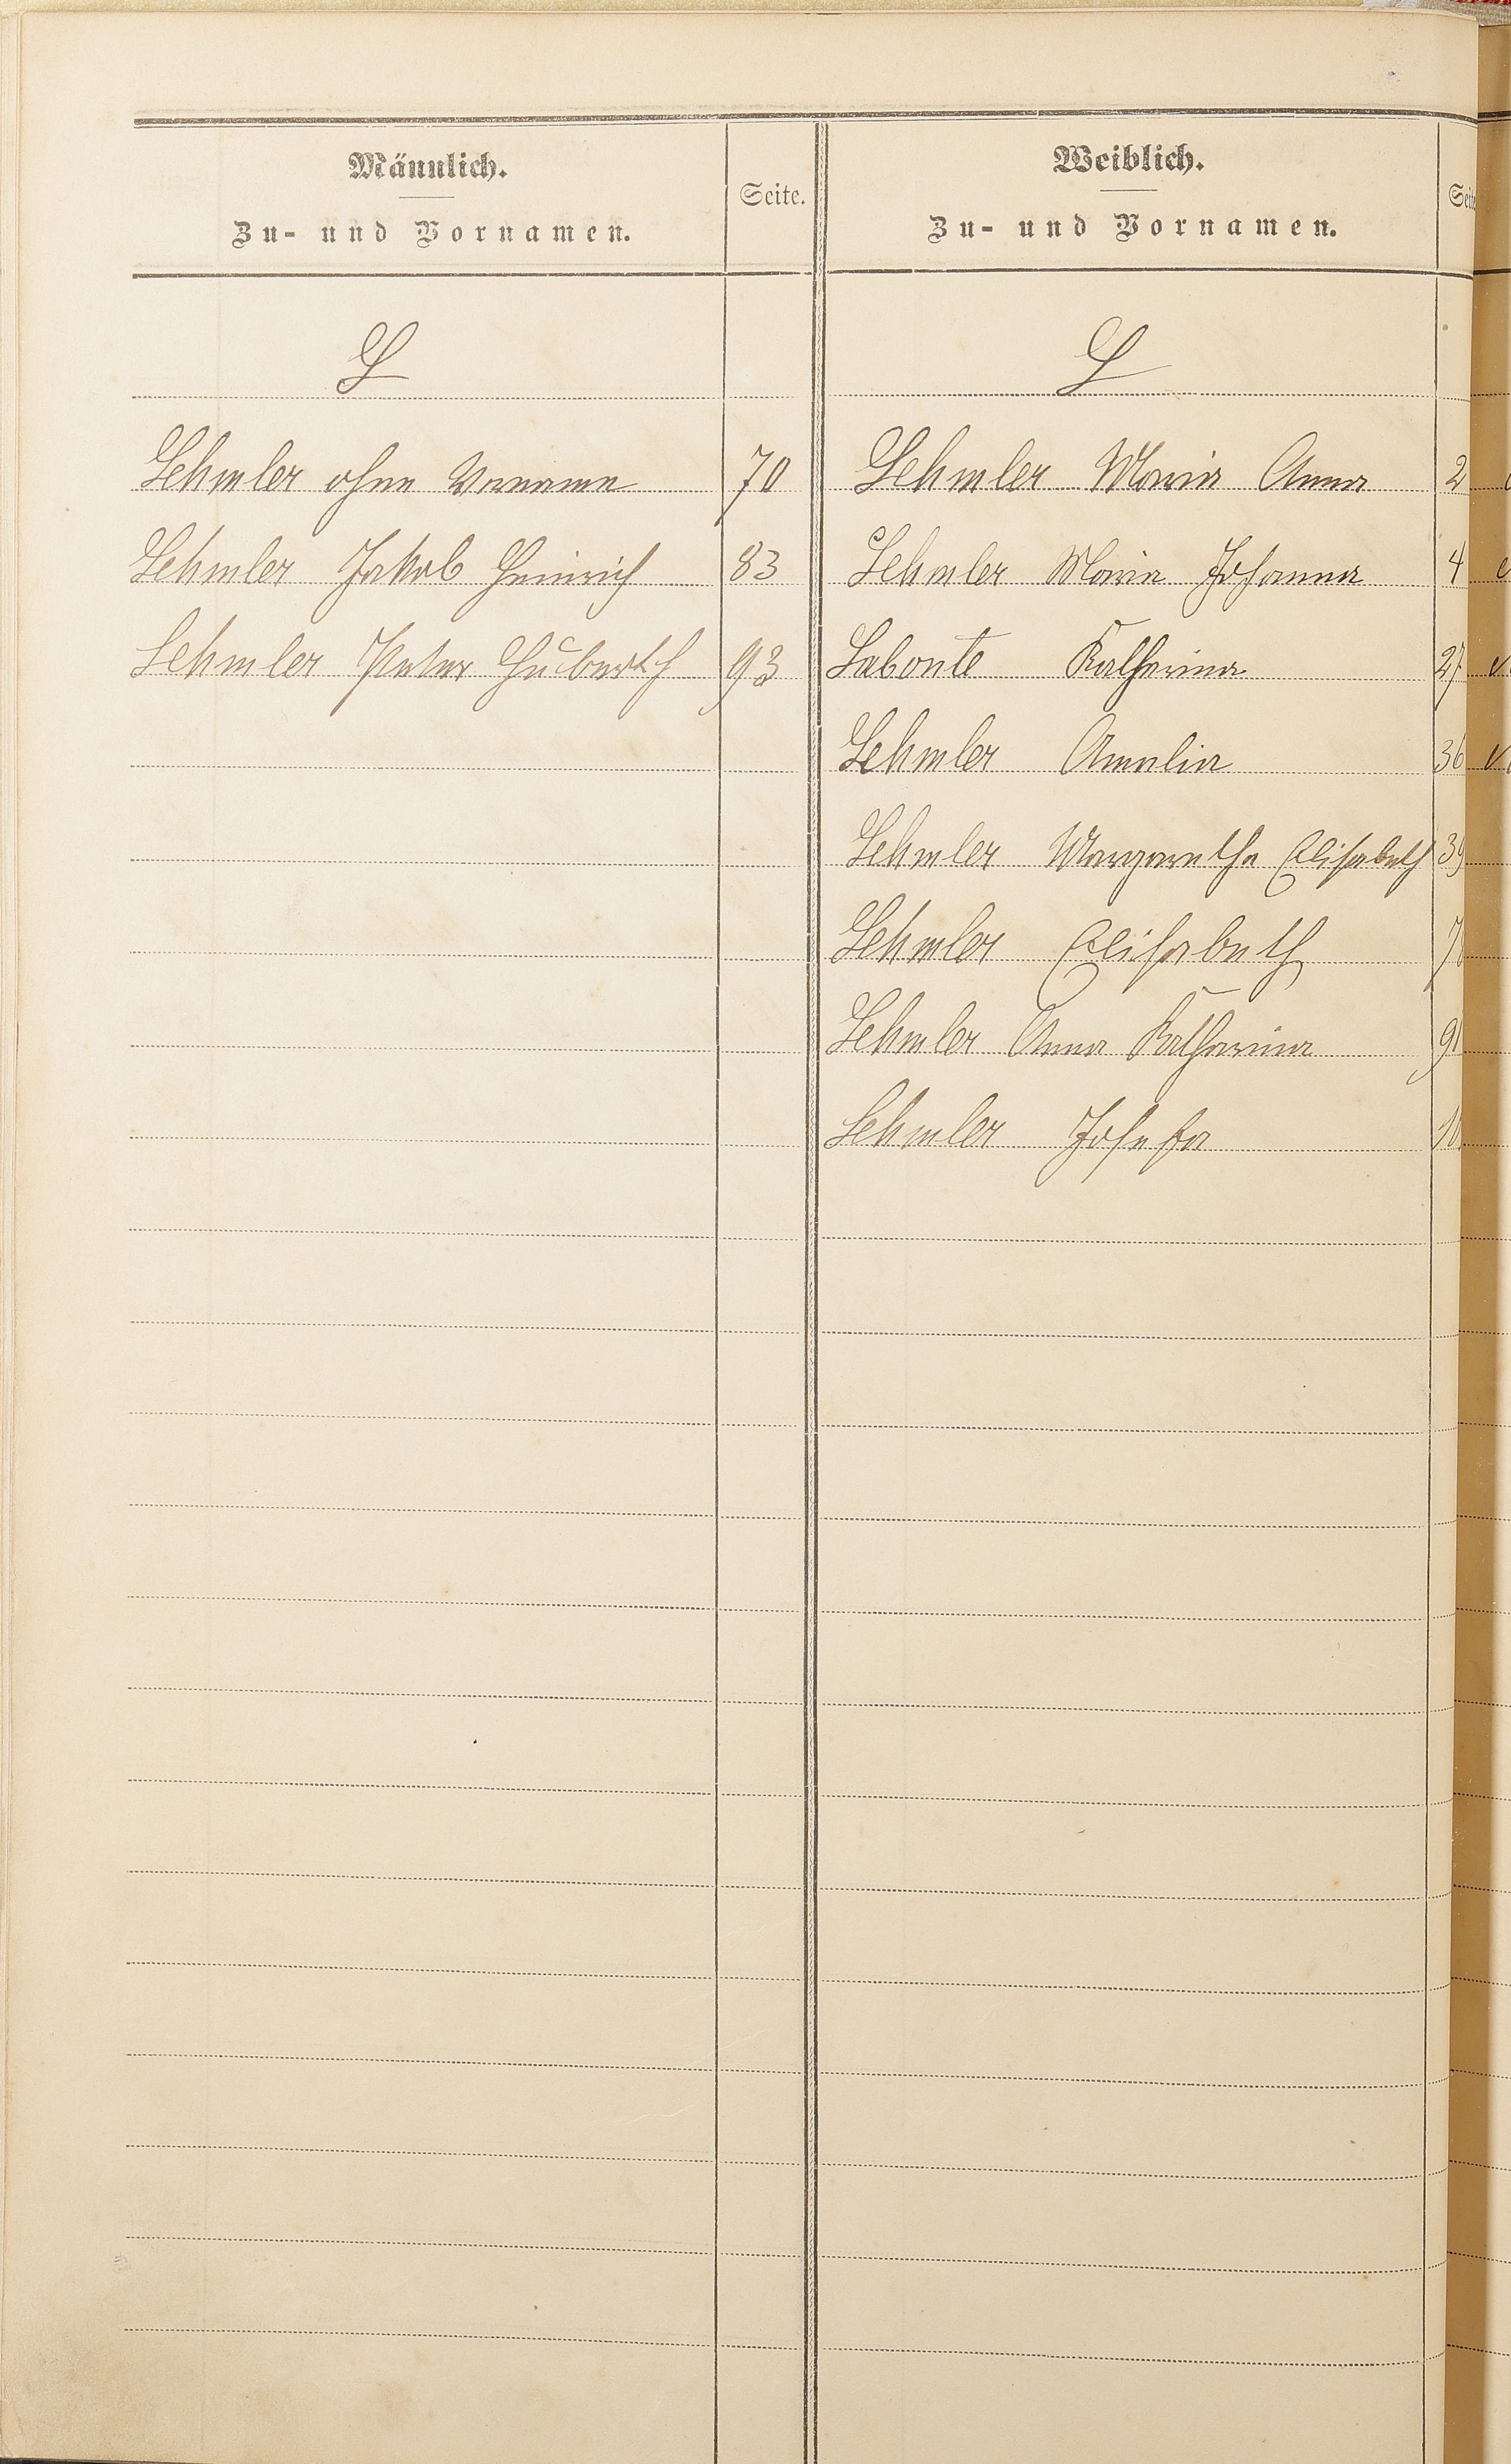 Männlich.
Zu- und Vornamen.
Seite.
Weiblich.
Zu- und Vornamen.
L
L
Lehmler ohne Vorname 70
Lehmler Maria Anna 2
Lehmler Jakob Heinrich 83
Lehmler Maria Johanna 4
Lehmler Peter Huberth 93
Labonte Katharina 27
Lehmler Amalia 36
Lehmler Margaretha Elisabeth 39
Lehmler Elisabeth
Lehmler Anna Katharina 91
Lehmler Josefa